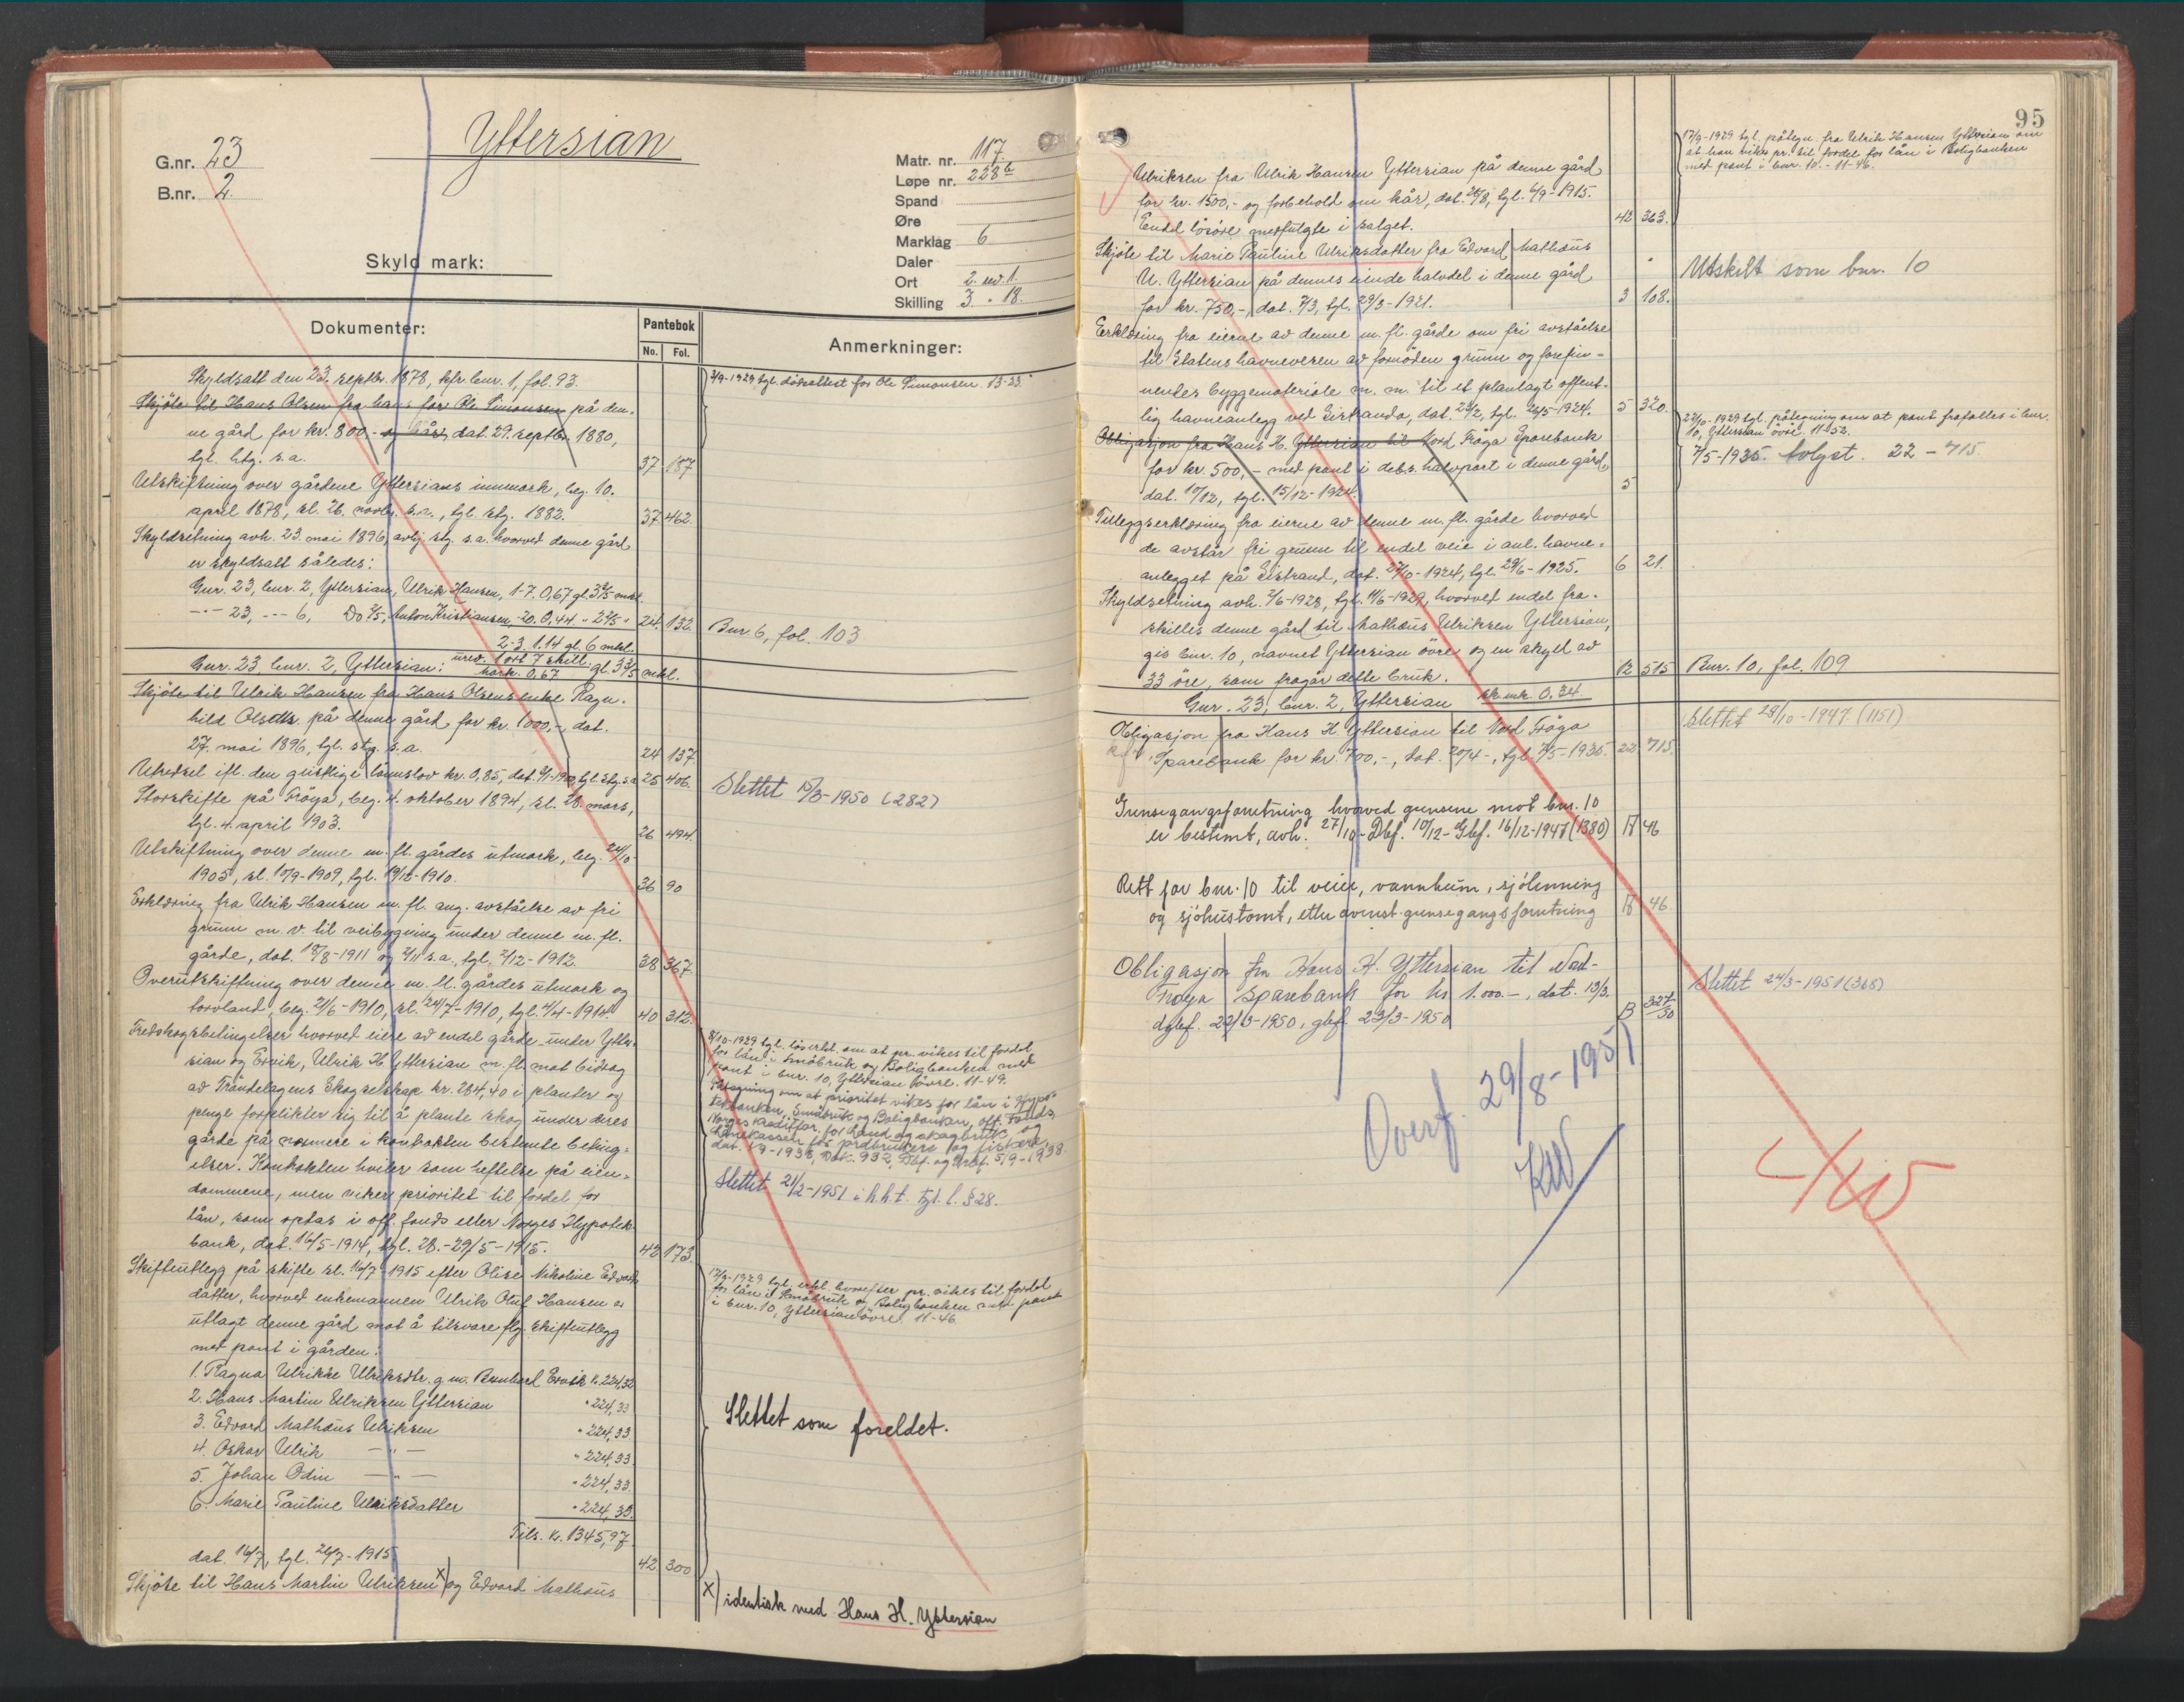 G.nr. 23
B.nr. 2
Yttersian
Skyld mark:
Matr. nr. 117
Løpe nr. 228 b
Spand
Øre
Marklag 6
Daler
Ort 2. 1.
Skilling 3 . 18.
Dokumenter:
Pantebok
No. Fol.
Anmerkninger:
Skyldsatt den 23. septbr. 1878, kfr. bnr. 1, fol. 93.
2/9-1929 tgl. dødsattest for Ole Simonsen. 13-23.
Skjöte til Hans Olsen fra hans far Ole Simonsen på den-
ne gård for kr. 800,- og kår, dat. 29. septbr. 1880,
tgl. htg. s.a. 37 187
Utskiftning over gårdene Yttersians innmark, beg. 10.
april 1878, sl. 26. novbr. s.a., tgl. stg. 1882. 37 462
Skyldsetning avh. 23. mai 1896, avhj. stg. s.a. hvorved denne gård
er skyldsatt således:
Gnr. 23, bnr. 2, Yttersian, Ulrik Hansen, 1-7. 0,67 gl. 3 3/5 mkl.
-"- 23, -"- 6, Do 2/5, Anton Kristiansen, -20. 0,44 " 2 2/5 " 24. 132.
Bnr. 6, fol. 103
2-3. 1.14 gl. 6 mkl.
Gnr. 23, bnr. 2, Yttersian: ured. 1 ort 7 skill. mark. 0,67 gl. 3 3/5 mkl.
Skjöte til Ulrik Hansen fra Hans Olsens enke Ragn-
hild Olsdtr. på denne gård for kr. 1000,-, dat.
27. mai 1896, tgl. stg. s.a. 24 137.
Utredsel ifl. den lovnslov kr. 0,85, tgl. stg. s.a. 25 406.
Slettet 15/3-1950 (282)
Storskifte på Fröya, beg. 4. oktober 1894, sl. 28. mars,
tgl. 4. april 1903. 26 494.
Utskiftning over denne m. fl. gårdes utmark, beg. 24/10-
1905, sl. 10/9-1909, tgl. 19/12-1910. 36 90
Erklæring fra Ulrik Hansen m. fl. ang. avståelse av fri
grunn m. v. til veibygning under denne m. fl.
gårde, dat. 18/8-1911 og 2/11 s.a., tgl. 2/12-1912. 38 367.
Overutskiftning over denne m. fl. gårdes utmark og
torvland, beg. 21/6-1910, sl. 24/7-1910, tgl. 4/4-1914. 40 312.
Fredskogsbetingelser hvorved eiere av endel gårde under Ytter-
sian og Ervik, Ulrik H. Yttersian m. fl. mot bidrag
av Tröndelagens Skogselskap kr. 284,40 i planter og
penge forplikter sig til å plante skog under deres
gårde på nærmere i kontrakten bestemte beting-
elser. Kontrakten hviler som heftelse på eien-
dommene, men viker prioritet til fordel for
lån, som optas i off. fonds eller Norges Hypotek-
bank, dat. 16/5-1914, tgl. 28.-29/5-1915. 42 173.
8/10-1929 tgl. löserkl. om at pr. vikes til fordel
for lån i Småbruk og Boligbanken med
pant i bnr. 10, Yttersian övre. 11-49.
Påtegning om at prioritet vikes for lån i Hypo-
tekbanken, Småbruk og Boligbanken, off. Fonds,
Norges Kreditfor. for land og skogbruk og
Lånekassen for jordbrukere og fiskere,
dat. 1/9-1938, Dok. 932, Dbf. og Gbf. 5/9-1938.
Slettet 21/2-1951 i h.h.t. tgl. l. § 28.
Skifteutlegg på skifte sl. 16/7-1915 efter Olise Nikoline Edvards-
datter, hvorved enkemannen Ulrik Oluf Hansen er
utlagt denne gård mot å tilsvare flg. skifteutlegg
med pant i gården:
17/9-1929 tgl. erkl. hvorefter pr. vikes til fordel
for lån i Småbruk og Boligbanken med pant
i bnr. 10, Yttersian övre. 11-46.
1. Ragna Ulrikke Ulriksdtr. g. m. Bernhard Ervik k. 224,32
2. Hans Martin Ulriksen Yttersian " 224,33
3. Edvard Mathæus Ulriksen " 224,33
4. Oskar Ulrik -"- " 224,33.
5. Johan Odin -"- " 224,33.
6. Marie Pauline Ulriksdatter " 224,33.
Tils. k. 1345,97.
Slettet som foreldet.
dat. 16/7, tgl. 26/7-1915. 42 300
Skjöte til Hans Martin Ulriksen x) og Edvard Mathæus
x) identisk med Hans H. Yttersian
95
Ulriksen fra Ulrik Hansen Yttersian på denne gård
for kr. 1500,- og forbehold om kår, dat. 26/8, tgl. 6/9-1915.
Endel lösöre medfulgte i salget. 42 363.
17/9-1929 tgl. påtegn. fra Ulrik Hansen Yttersian om
at han vikes pr. til fordel for lån i Boligbanken
med pant i bnr. 10. - 11-46.
Skjöte til Marie Pauline Ulriksdatter fra Edvard Mathæus
U. Yttersian på dennes eiende halvdel i denne gård
for kr. 750,-, dat. 7/3, tgl. 29/3-1921. 3 108.
Utskilt som bnr. 10
Erklæring fra eierne av denne m. fl. gårde om fri avståelse
til Statens havnevesen av fornöden grunn og forefin-
nendes byggemateriale m. m. til et planlagt offent-
lig havneanlegg ved Sistranda, dat. 23/2, tgl. 26/5-1924. 5 320.
Obligasjon fra Hans H. Yttersian til Nord Fröya Sparebank
for kr. 500,- med pant i debs. halvpart i denne gård,
dat. 10/12, tgl. 15/12-1924. 5
22/10-1929 tgl. påtegning om at pant frafalles i bnr.
10, Yttersian övre. 11-52.
7/5-1935. Avlyst. 22-715
Tilleggserklæring fra eierne av denne m. fl. gårde hvorved
de avstår fri grunn til endel veie i anl. havne-
anlegget på Sistrand, dat. 27/6-1924, tgl. 29/6-1925. 6 21.
Skyldsetning avh. 2/6-1928, tgl. 11/6-1929, hvorved endel fra-
skilles denne gård til Mathæus Ulriksen Yttersian,
gis bnr. 10, navnet Yttersian övre og en skyld av
33 öre, som fragår dette bruk. 12 515
Bnr. 10, fol. 109
Gnr. 23, bnr. 2, Yttersian sk. mk. 0.34
Obligasjon fra Hans H. Yttersian til Nord Fröya
Sparebank for kr. 700,-, dat. 20/4-, tgl. 7/5-1935. 22 715.
Slettet 28/10-1947 (1151)
Grensegangsforretning hvorved grensene mot bnr. 10
er bestemt, avh. 27/10-Dbf. 10/12-Gbf. 16/12-1947 (1380) 17 46
Rett for bnr. 10 til veier, vannbrunn, sjölenning
og sjöhustomt, etter ovenst. grensegangsforretning 17 46.
Obligasjon fra Hans H. Yttersian til Nord-
Fröya Sparebank for kr 1.000-, dat. 13/3.
dgbf. 22/3-1950, gbf. 23/3-1950 B 327/50
Slettet 24/3-1951 (368)
Overf. 29/8-1951
KW